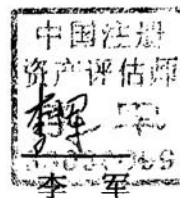 中国注册
资产评估师
李军
李军